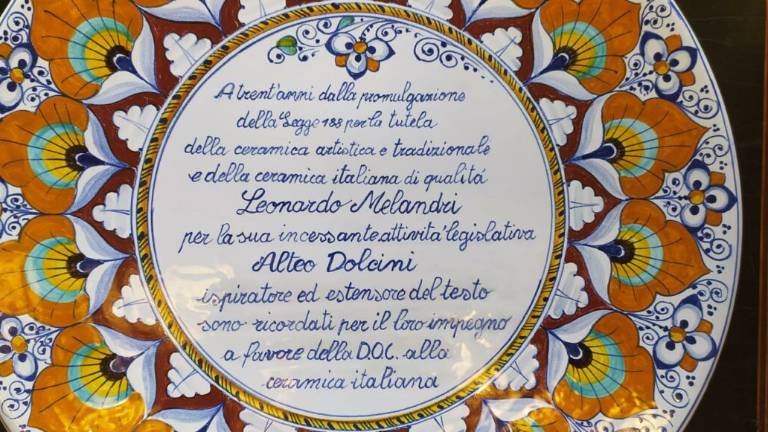 A trent'anni dalla promulgazione
della Legge 188 per la tutela
della ceramica artistica e tradizionale
e della ceramica italiana di qualitá
Leonardo Melandri
per la sua incessante attivitá legislativa
Alteo Dolcini
ispiratore ed estensore del testo
sono ricordati per il loro impegno
a favore della D.O.C. alla
ceramica italiana